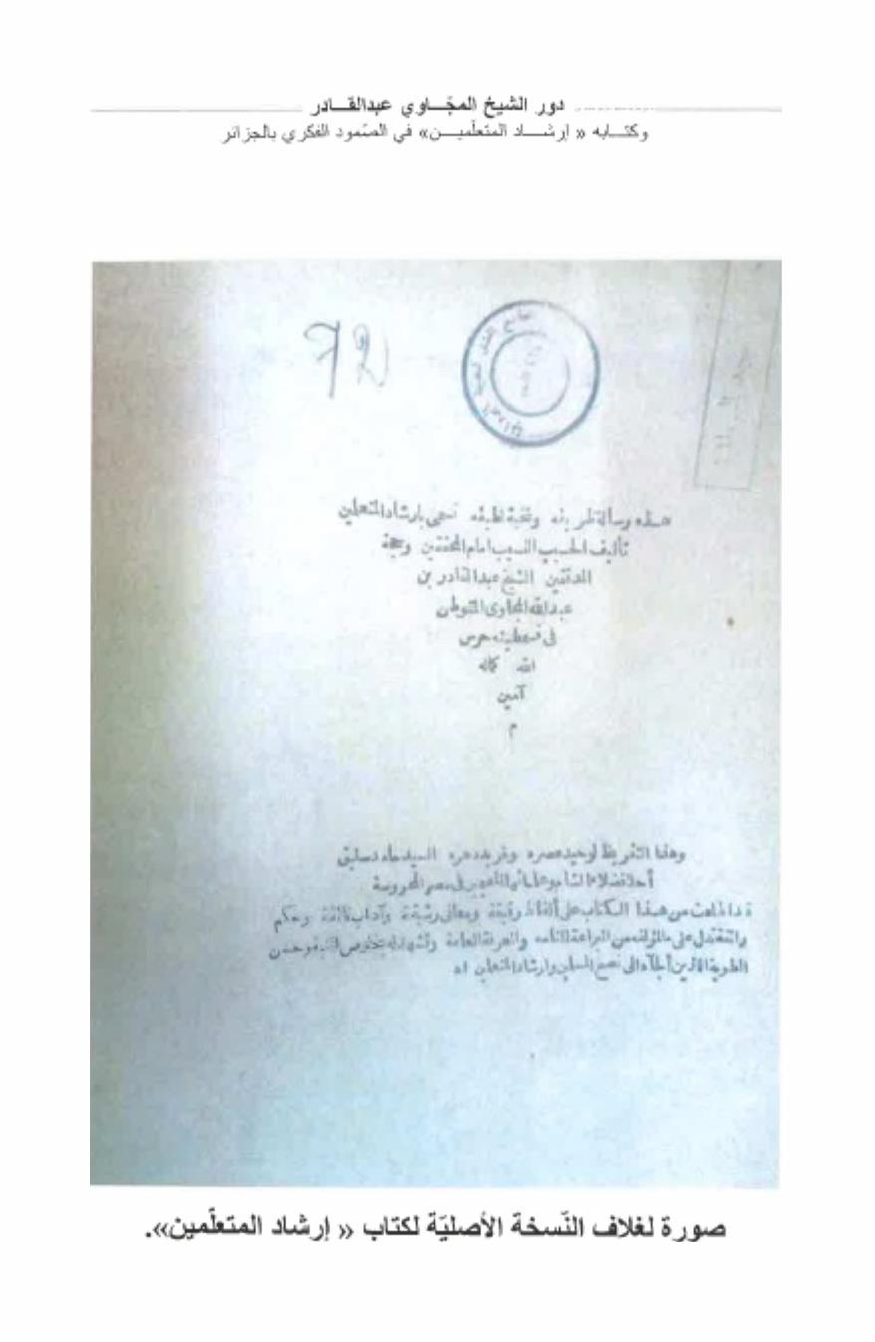 دور الشيخ المجّـــاوي عبدالقـــادر
وكتـــابه « إرشـــاد المتعلّميـــن» في الصّمود الفكري بالجزائر
72
هذه رسالة ظريفه وتحفة لطيفه تسمى بارشاد المتعلمين
تأليف الحسيب النسيب امام المحققين وحجة
المدققين الشيخ عبد القادر بن
عبد الله المجاوى المتوطن
فى قسنطينه حرس
الله كماله
آمين
م
وهذا التقريظ لوحيد عصره وفريد دهره السيد
أحد فضلاء فى مصر المحروسة
قد اطلعت من هذا الكتاب على ألفاظ رقيقة ومعانى رشيقة وآداب فائقة وحكم
من البراعة التامه والمعرفة العامة وتشهد له بخلوص النية وحسن
الطوية الى نصح المسلمين وارشاد المتعلمين اه
صورة لغلاف النّسخة الأصليّة لكتاب « إرشاد المتعلّمين».